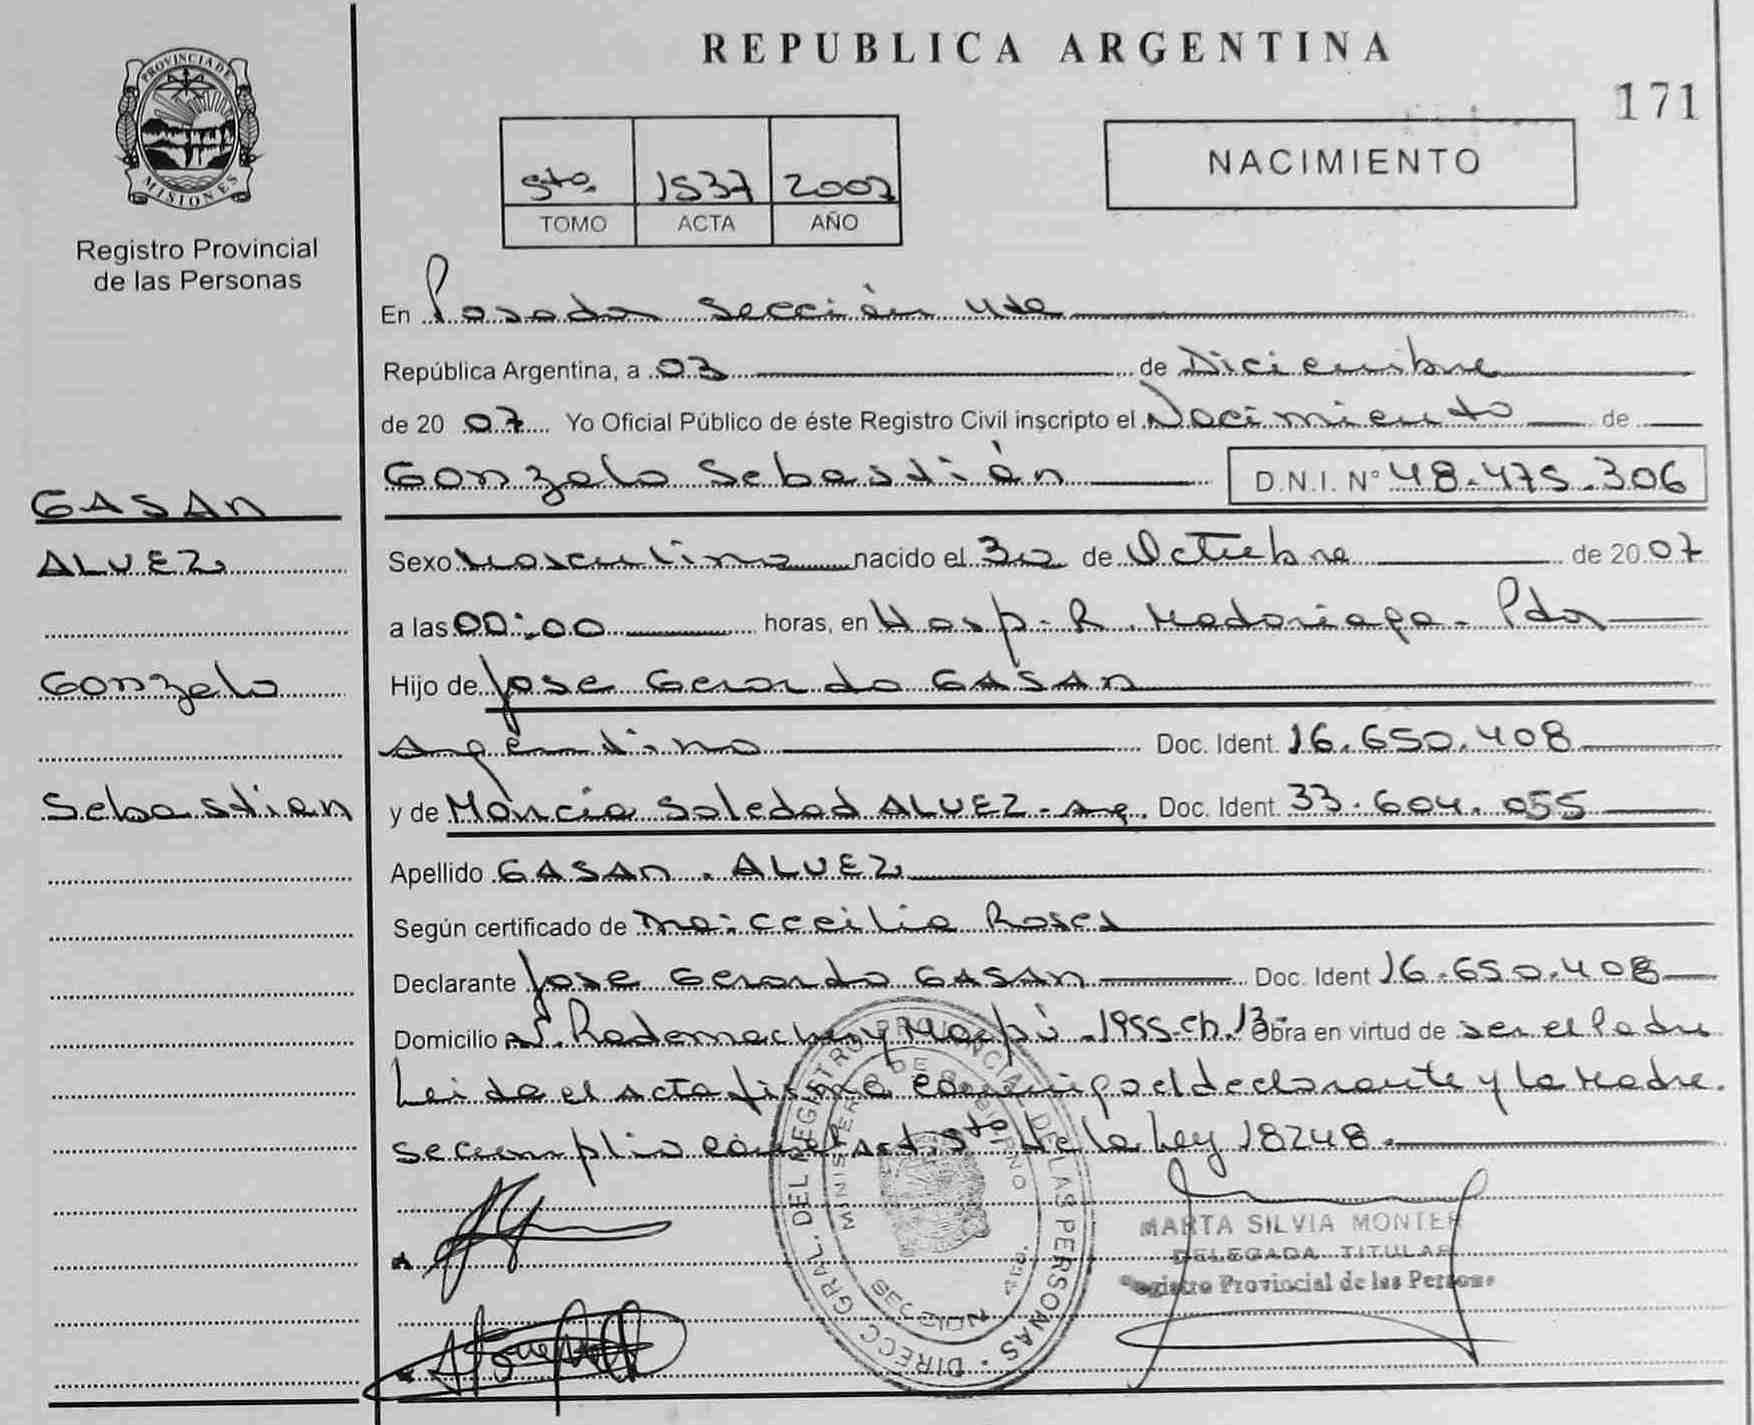 PROVINCIA DE
MISIONES
Registro Provincial
de las Personas
GASAN
ALVEZ
Gonzalo
Sebastian
REPUBLICA ARGENTINA
171
5to. 1537 2007
TOMO ACTA AÑO
NACIMIENTO
En Posadas Sección 4ta
República Argentina, a 03 de Diciembre
de 20 07 Yo Oficial Público de éste Registro Civil inscripto el Nacimiento de
Gonzalo Sebastián D.N.I. N° 48.475.306
Sexo Masculino nacido el 30 de Octubre de 20 07
a las 00:00 horas, en Hosp. R. Madariaga - Pdas
Hijo de Jose Gerardo GASAN
Argentino Doc. Ident. 16.650.408
y de Márcia Soledad ALVEZ - Arg. Doc. Ident. 33.604.055
Apellido GASAN ALVEZ
Según certificado de Ma. Ccecilia Roses
Declarante Jose Gerardo GASAN Doc. Ident 16.650.408
Domicilio N. Rademacher y Maipú - 1955 - Ch. 13 - Obra en virtud de ser el Padre
Leida el acta firma conmigo el declarante y la Madre.
se cumplio con el Art. 5to de la Ley 18248.
DIRECC. GRAL. DEL REGISTRO PROVINCIAL DE LAS PERSONAS
MINISTERIO DE GOBIERNO
MARTA SILVIA MONTER
DELEGADA TITULAR
Registro Provincial de las Persons